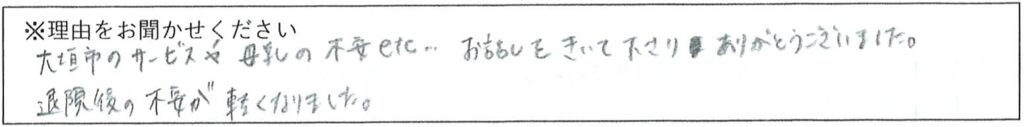 ※理由をお聞かせください
大垣市のサービスや母乳の不安etc… お話しをきいて下さりありがとうございました。
退院後の不安が軽くなりました。